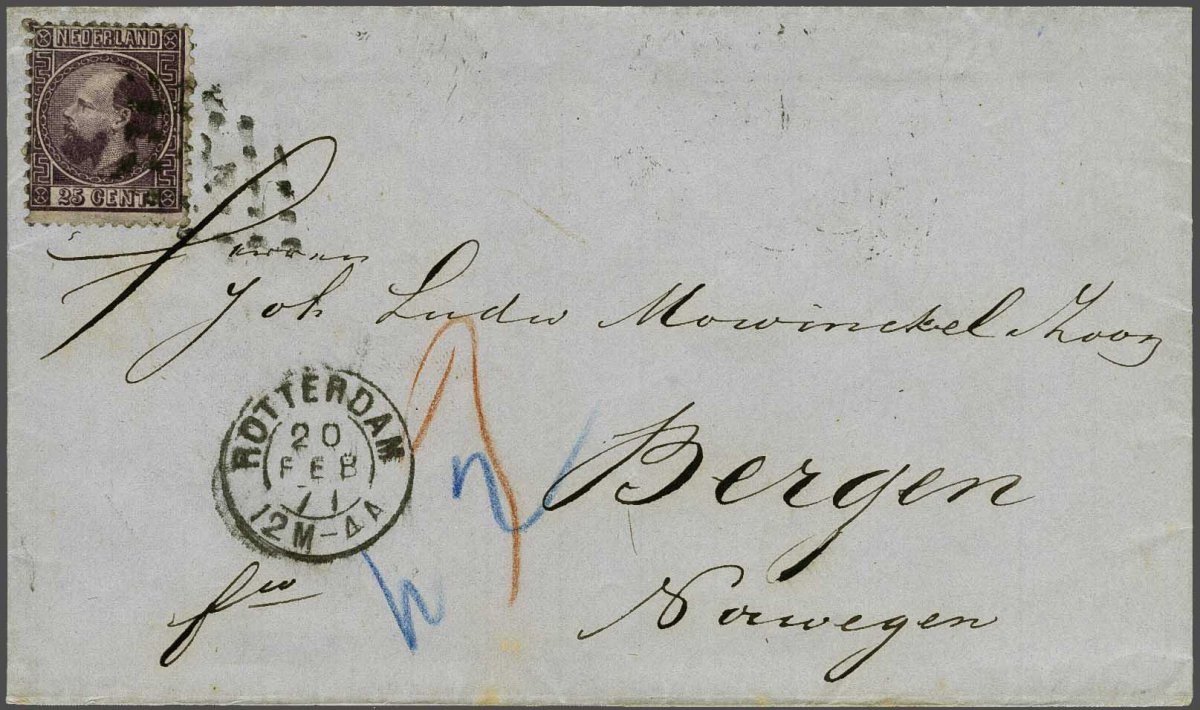 NEDERLAND
25 CENT
Herren
Joh Ludw Mowinckel Zoon
ROTTERDAM
20
FEB
71
12M-4A
Bergen
frco
Norwegen